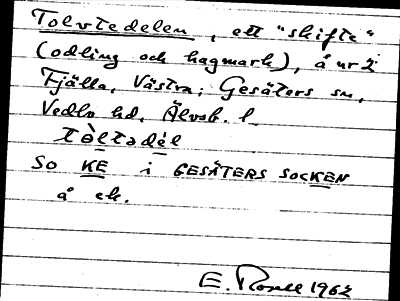 Tolvtedelen, ett "skifte"
(odling och hagmark), å nr 2
Fjälla, Västra; Gesäters sn,
Vedbo hd, Älvsb. l.
tòltədèl
SO KE i GESÄTERS SOCKEN
å ek.
E. Rosell 1962